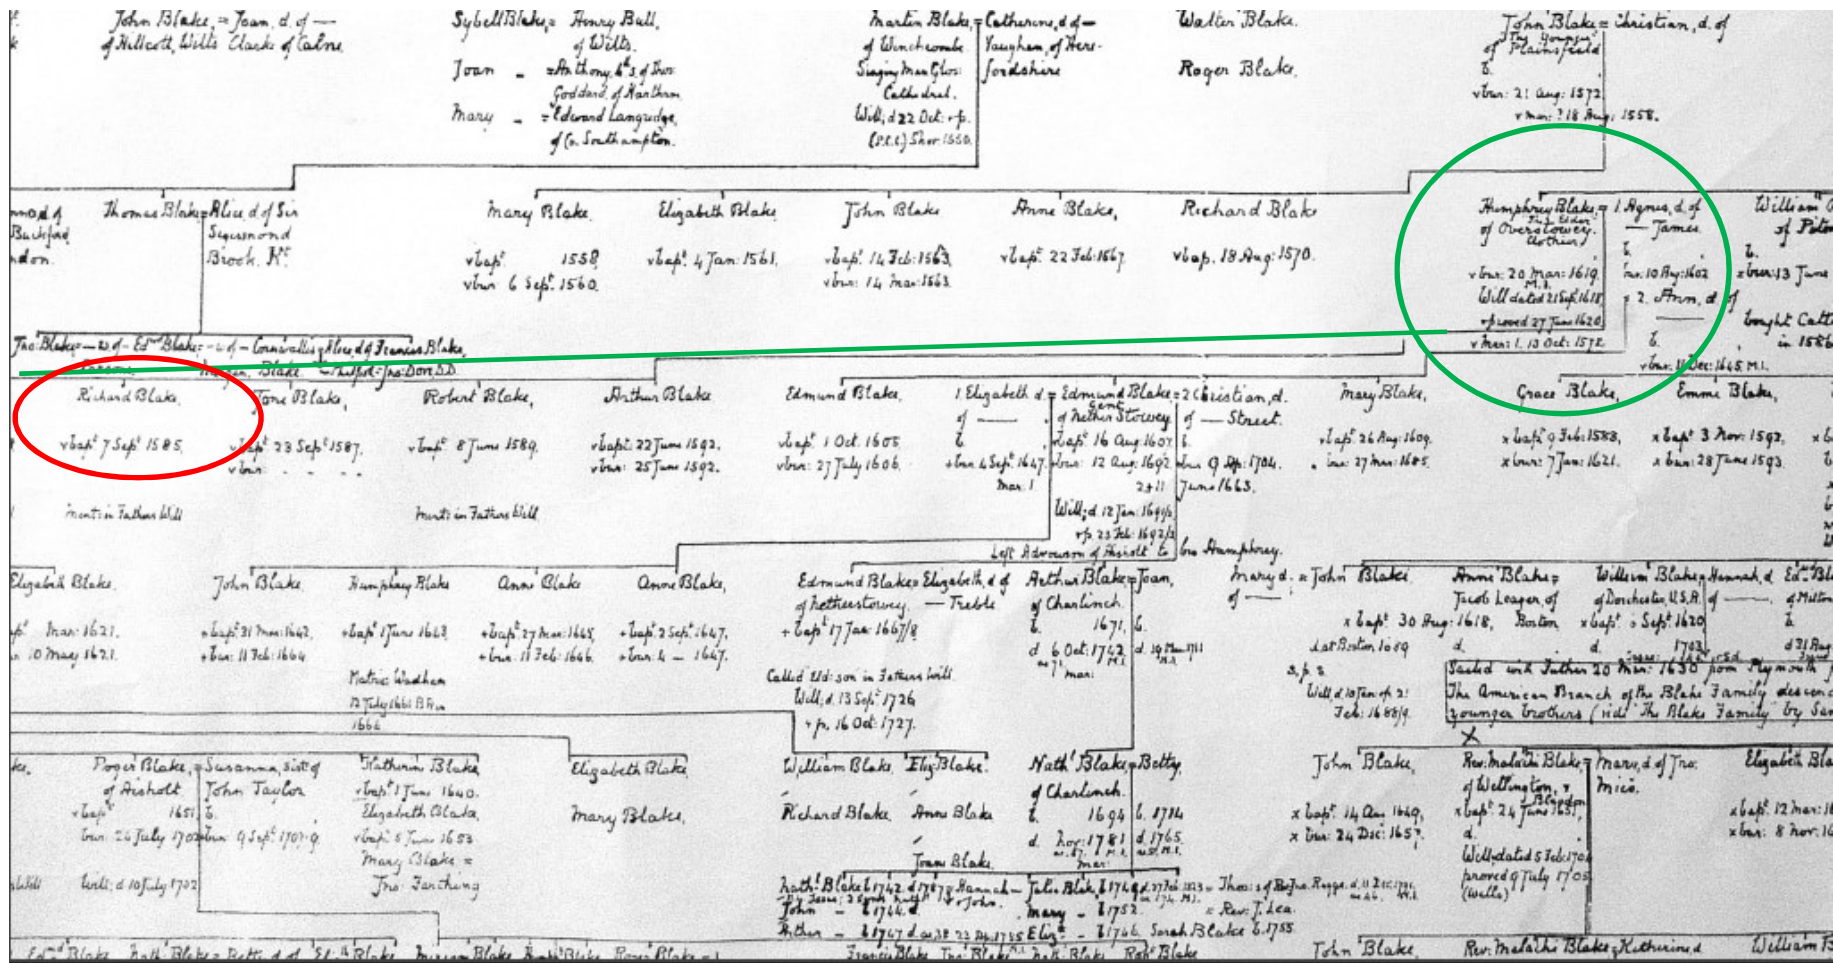 John Blake, = Joan, d. of —
of Hillcott, Wilts Clarke of Calne
Sybell Blake, = Henry Ball,
of Wilts.
Joan – = Anthony, 4th s. of Thos
Goddard, of Hartham
Mary – = Edward Langridge,
of Co Southampton.
Martin Blake, = Catherine, d of –
of Winchcombe Vaughan, of Here-
Singing Man Glos: fordshire
Cathedral.
Will, d 22 Oct: + p.
(P.C.C.) Nov: 1550.
Walter Blake.
Roger Blake.
John Blake = Christian, d. of
The Younger
of Plainsfield
b.
v bur: 21 Aug: 1572
v mar: ? 18 Aug: 1558.
Thomas Blake = Alice, d of Sir
Sigismond
Brook. Kt.
Mary Blake.
v bapt 1558
v bur 6 Sept. 1560.
Elizabeth Blake
v bapt. 4 Jan: 1561.
John Blake
v bapt. 14 Feb: 1563.
v bur: 14 Mar: 1563.
Anne Blake,
v bapt. 22 Feb: 1567.
Richard Blake
v bap. 18 Aug: 1570.
Humphrey Blake, = 1. Agnes, d. of
The Elder — James
of Overstowey. b.
Clothier
v bur: 20 Mar: 1619. bur: 10 Aug: 1602
M.I.
Will dated 21 Sept. 1618 = 2. Ann, d. of
+ proved 27 June 1620.
v Mar: 1. 13 Oct: 1572. b.
v bur: 11 Dec: 1645 M.I.
William
b.
x bur: 13 June
bought
in 1586
Jno: Blake = — w of – Edmd Blake = – w of – Cornwallis = Alice, d of Francis Blake,
Richard Blake,
v bapt 7 Sept 1585.
Ment: in Fathers Will
Jone Blake,
v bapt 23 Sept 1587.
v bur:
Robert Blake,
v bapt 8 June 1589.
Ment: in Fathers Will
Arthur Blake
v bapt: 22 June 1592.
v bur: 25 June 1592.
Edmund Blake,
v bapt 1 Oct. 1605
v bur: 27 July 1606.
1. Elizabeth d. = Edmund Blake = 2 Christian, d.
of — Gent of — Street.
of Nether Stowey
b. v bapt 16 Aug: 1607. b.
v bur 4 Sept. 1647. v bur: 12 Aug: 1692 v bur 9 Apr: 1704.
Mar: 1. 2 + 11 June 1663.
Will; d. 12 Jan: 1691/2
+ p. 23 Feb: 1692/3
Left Advowson of Aisholt to bro Humphrey.
Mary Blake,
v bapt 26 Aug: 1609.
v bur: 27 Mar: 1685.
Grace Blake,
x bapt 9 Feb: 1588,
x bur: 7 Jan: 1621.
Emme Blake,
x bapt 3 Nov: 1592,
x bur: 28 June 1593.
Elizabeth Blake.
Mar: 1621.
10 May 1621.
John Blake,
+ bapt 31 Mar: 1642.
+ bur: 11 Feb: 1644
Humphrey Blake
+ bapt 1 June 1643.
Matric Wadham
12 July 1661 B.A. in
1664
Anne Blake
+ bapt 27 Mar: 1645.
+ bur: 11 Feb: 1646.
Anne Blake,
+ bapt. 2 Sept: 1647.
+ bur: 4 – 1647.
Edmund Blake = Elizabeth, d of
of Netherstowey. — Treble
+ bapt 17 Jan: 1667/8
Called Eld: son in Fathers Will.
Will, d. 13 Sept: 1726
+ p. 16 Oct: 1727.
Arthur Blake = Joan,
of Charlinch.
b. 1671, b.
d 6 Oct: 1742 d. 19 Mar: 1711
M.I.
Mar:
Mary d. = John Blake
of —
x bapt 30 Aug: 1618,
d at Boston 1689
s. p. s.
Will d 10 Jan: + p 2:
Feb: 1688/9.
Anne Blake =
Jacob Leager, of
Boston
d.
William Blake = Hannah, d
of Dorchester, U.S.A. of —
x bapt. Sept: 1620
d. 1703
of Milton
b.
Sailed with Father 20 Mar: 1630 from Plymouth
The American Branch of the Blake Family
younger brothers (vide "The Blake Family" by
x
Roger Blake, = Susanna, sist of
of Aisholt John Taylor
v bapt 1651 b.
bur: 24 July 1702 bur: 9 Sept: 1707.
Will: d 10 July 1702
Katherine Blake
v bapt 1 June 1640.
Elizabeth Blake
v bapt. 5 June 1653
Mary Blake =
Jno: Farthing
Elizabeth Blake,
Mary Blake,
William Blake, Eliz: Blake.
Richard Blake, Anne Blake
Joan Blake.
Nathl Blake = Betty,
of Charlinch.
b. 1694 b. 1714
d. Nov: 1781 d. 1765.
Mar:
Nathl Blake b 1742. d 1787 = Hannah –
John – b 1744. d.
Arthur – b 1747
Mary – b 1752.
Eliz: – b 1746. Sarah Blake b. 1755
= Rev: J. Lea.
John Blake,
x bapt 14 Aug 1649,
x bur: 24 Dec: 1657.
Rev: Malachi Blake, = Mary, d of Jno:
of Wellington, & Mico.
Blagdon
x bapt 24 June 1651,
d.
Will, dated 5 Feb: 1704
proved 9 July 1705
(Wells)
Elizabeth
x bapt. 12 Mar:
x bur: 8 Nov:
Francis Blake
John Blake, Rev: Malachi Blake = Katherine, d William